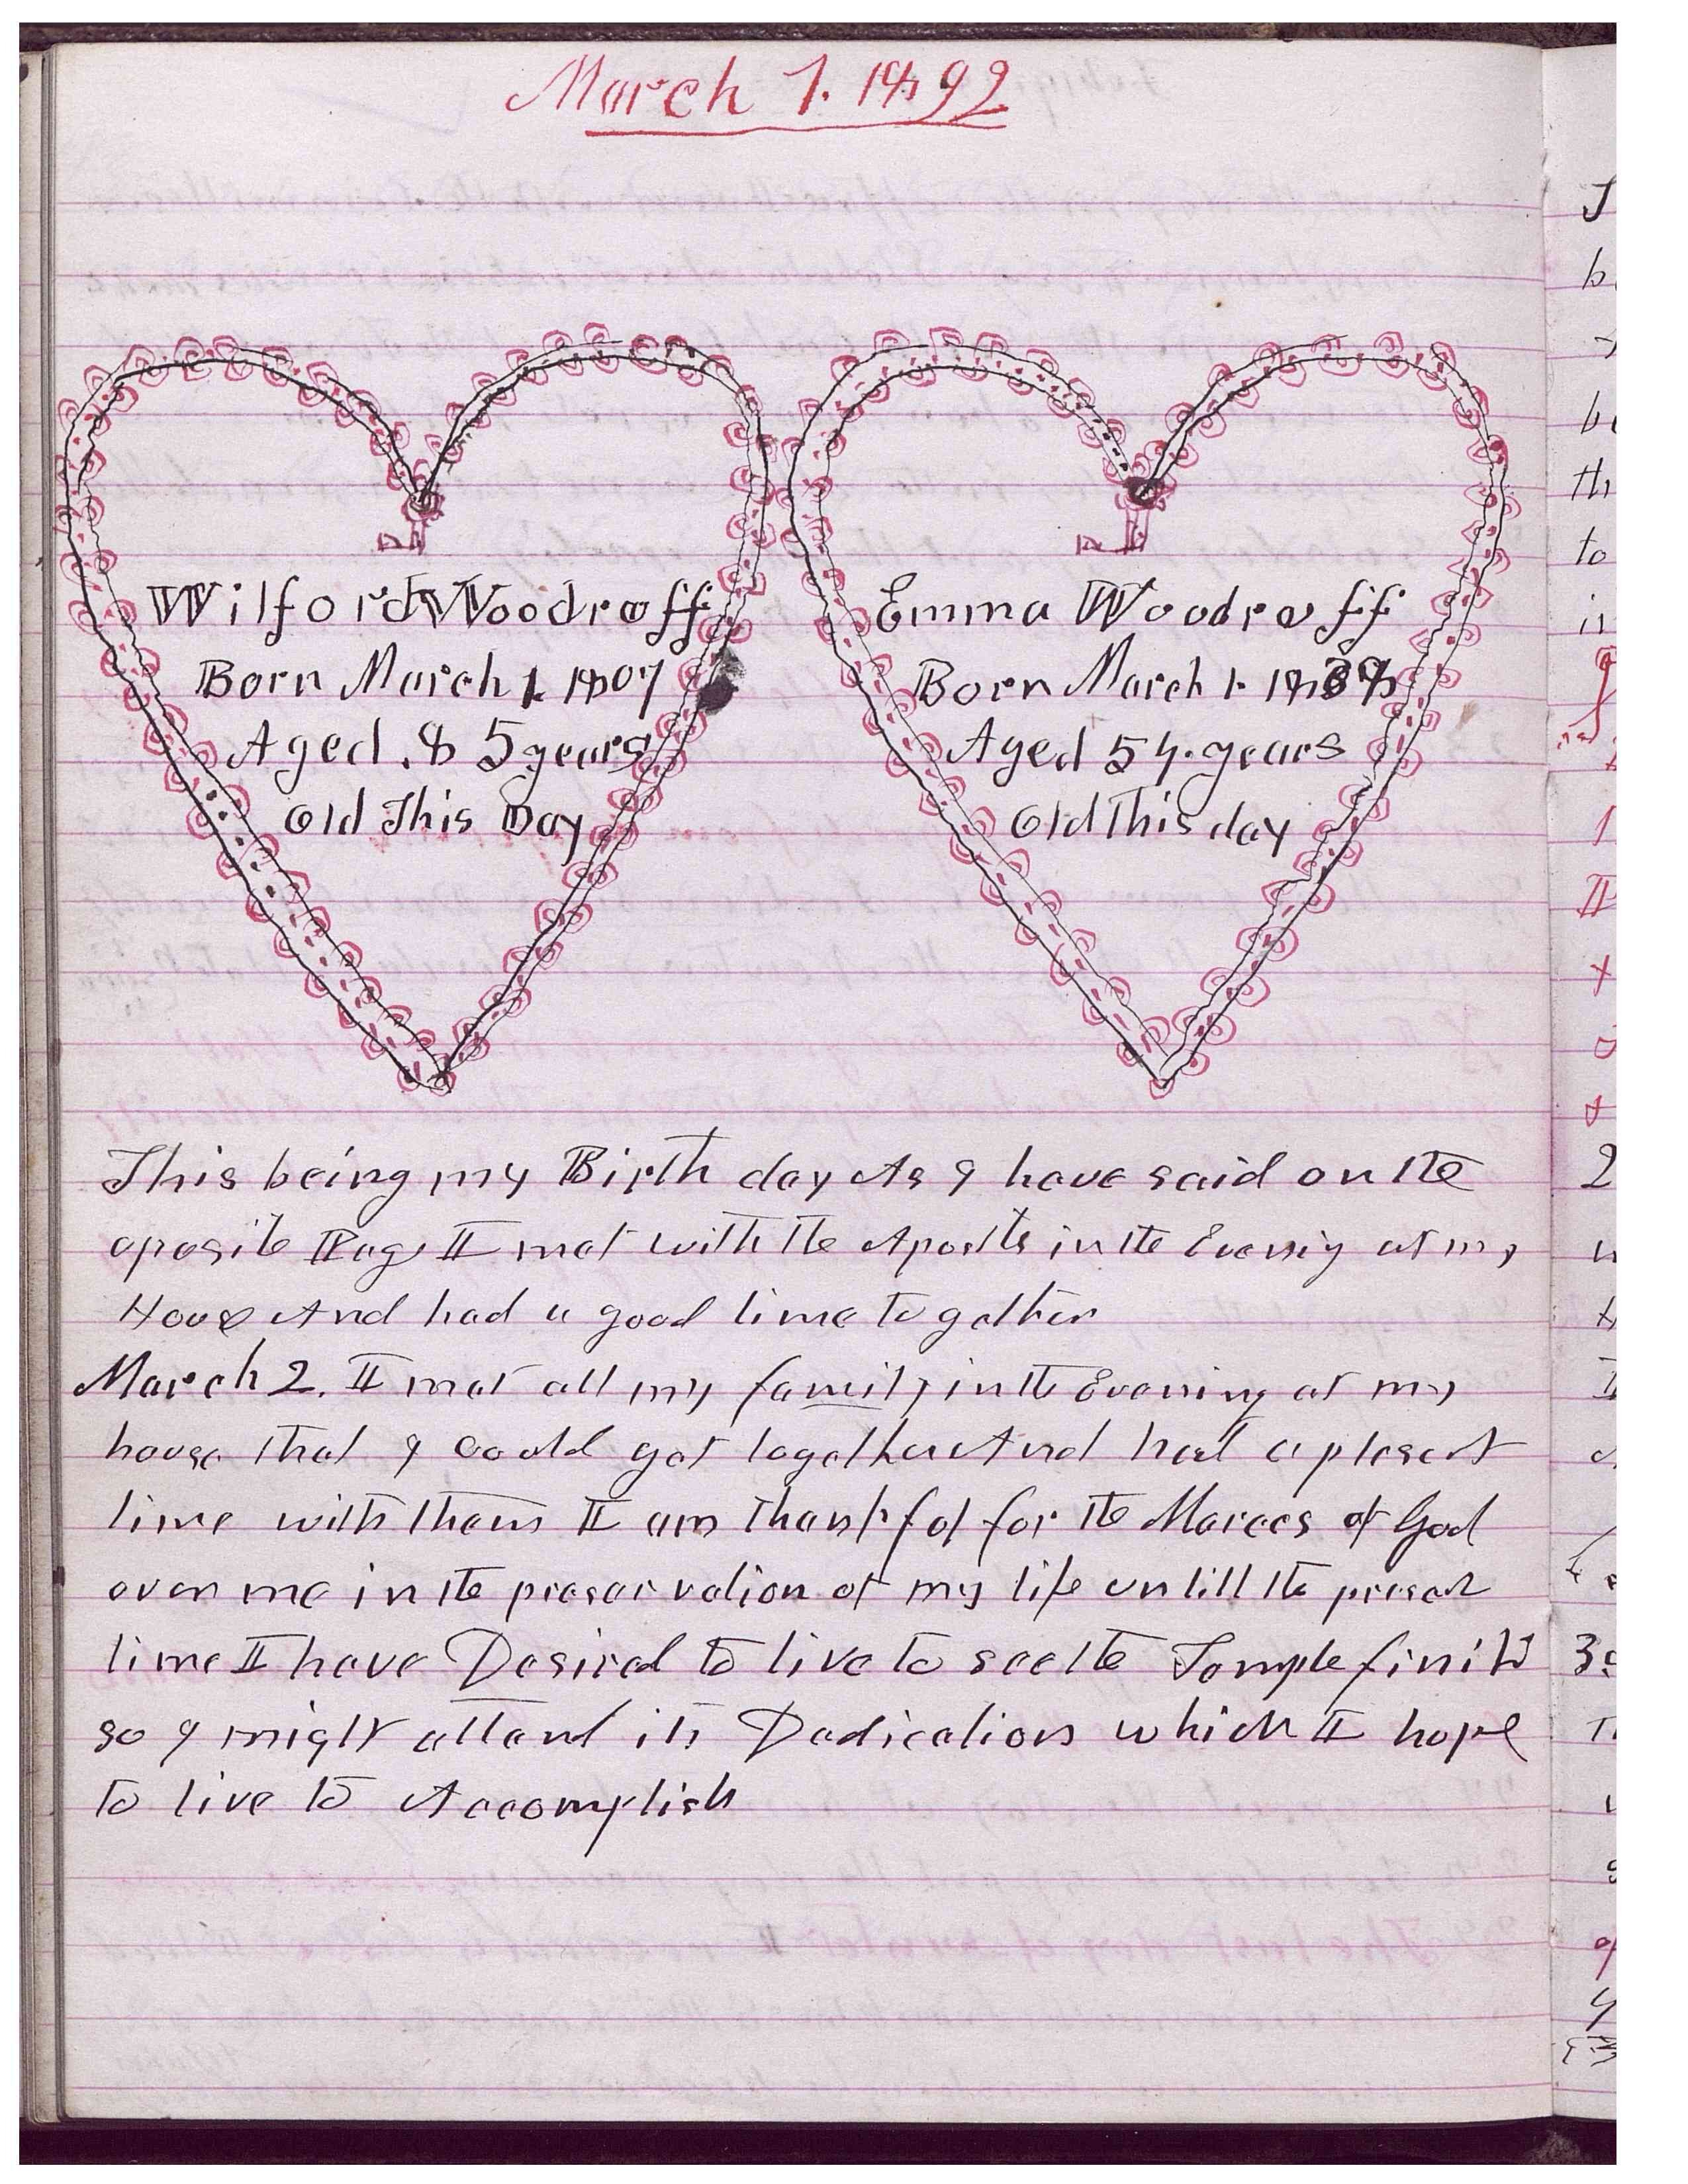 March 1. 1892
Wilford Woodruff
Born March 1. 1807
Aged 85 years
Old This Day
Emma Woodruff
Born March 1. 1838
Aged 54 years
Old This day
This being my Birth day As I have said on the
oposite Page I met with the Apostls in the Evening at my
House And had a good time together
March 2. I met all my family in the Evening at my
house that I could get together And had a plesent
time with them I am thankful for the Merces of God
over me in the preservation of my life untill the present
time I have Desired to live to see the Temple finishd
so I might attend its Dedication which I hope
to live to Accomplish